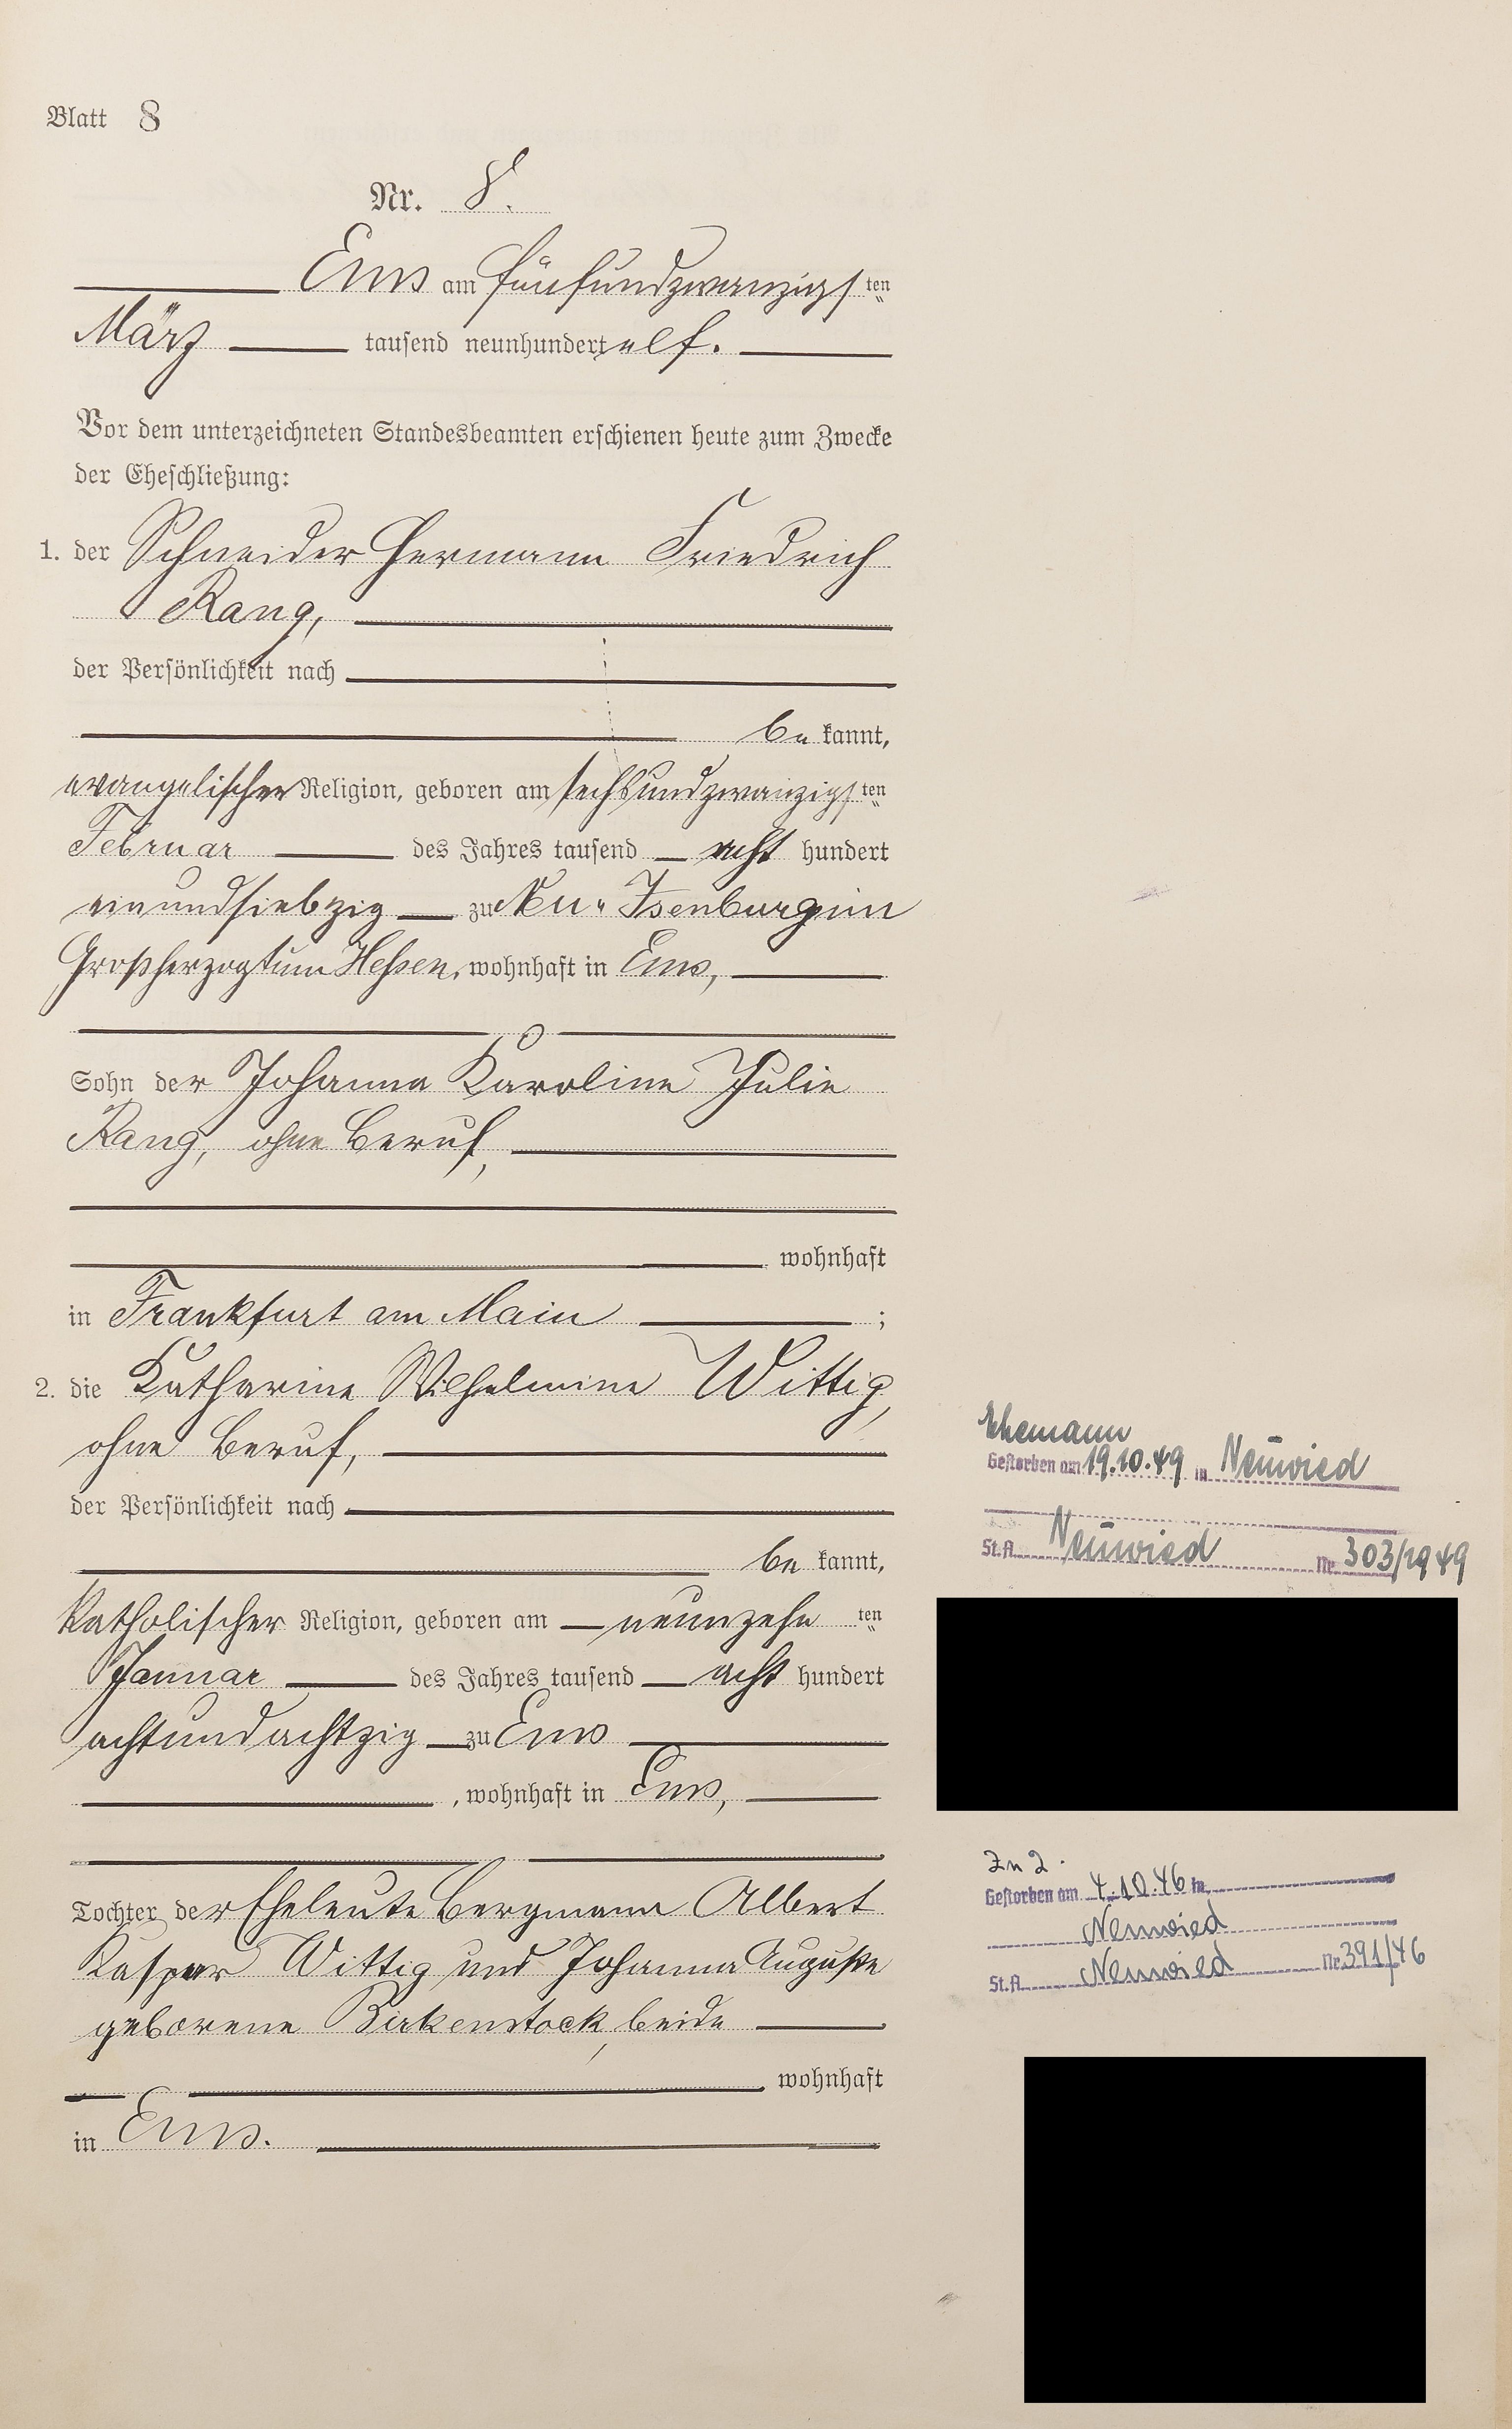 Blatt 8
Nr. 8.
Ems am fünfundzwanzigsten
März tausend neunhundert elf.
Vor dem unterzeichneten Standesbeamten erschienen heute zum Zwecke
der Eheschließung:
1. der Schneider Hermann Friedrich
Rang,
der Persönlichkeit nach
bekannt,
evangelischer Religion, geboren am sechsundzwanzigsten
Februar des Jahres tausend acht hundert
einundsiebzig zu Neu-Isenburg im
Großherzogtum Hessen, wohnhaft in Ems,
Sohn der Johanna Karoline Julie
Rang, ohne Beruf,
wohnhaft
in Frankfurt am Main ;
2. die Katharine Wilhelmine Wittig,
ohne Beruf,
der Persönlichkeit nach
bekannt,
katholischer Religion, geboren am neunzehnten
Januar des Jahres tausend acht hundert
achtundachtzig zu Ems
, wohnhaft in Ems,
Tochter der Eheleute Bergmann Albert
Kaspar Wittig und Johanna Auguste
geborene Birkenstock, beide
wohnhaft
in Ems.
Ehemann
Gestorben am 19.10.49 in Neuwied
St.A. Neuwied Nr. 303/1949
Zu 2.
Gestorben am 4.10.46 in
Neuwied
St.A. Neuwied Nr. 391/46